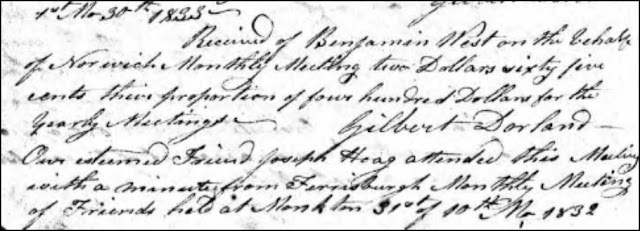 1st Mo 30th 1833
Received of Benjamin West on the behalf
of Norwich Monthly Meeting two Dollars sixty five
cents their proportion of four hundred Dollars for the
Yearly Meeting
Gilbert Dorland
Our esteemed Friend Joseph Hoag attended this Meeting
with a minute from Ferrisburgh Monthly Meeting
of Friends held at Monkton 31st of 10th Mo 1832